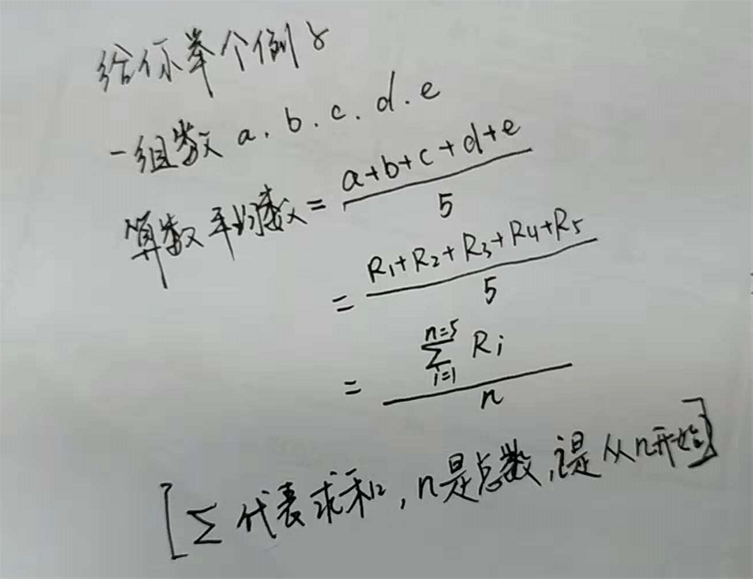 给你举个例子
一组数 a、b、c、d、e
算数平均数 = (a+b+c+d+e)/5
= (R₁+R₂+R₃+R₄+R₅)/5
= (∑_{i=1}^{n=5} Rᵢ)/n
[∑代表求和,n是总数,i是从n开始]